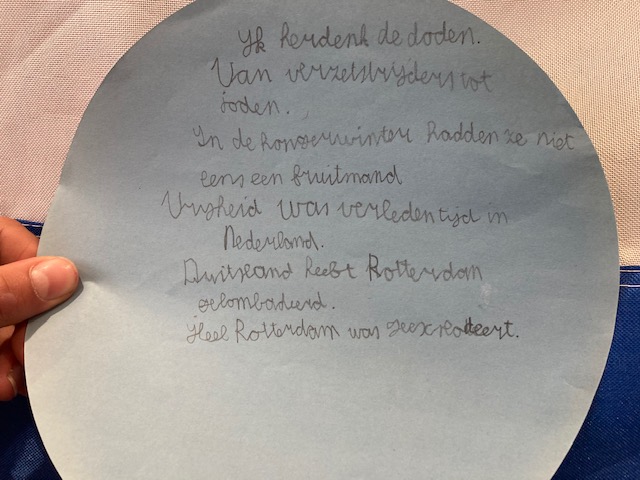 Ik herdenk de doden.
Van verzetstrijders tot
joden.
In de hongerwinter hadden ze niet
eens een fruitmand
Vrijheid was verleden tijd in
Nederland.
Duitsland heeft Rotterdam
gebombadeerd.
Heel Rotterdam was geexplodeert.